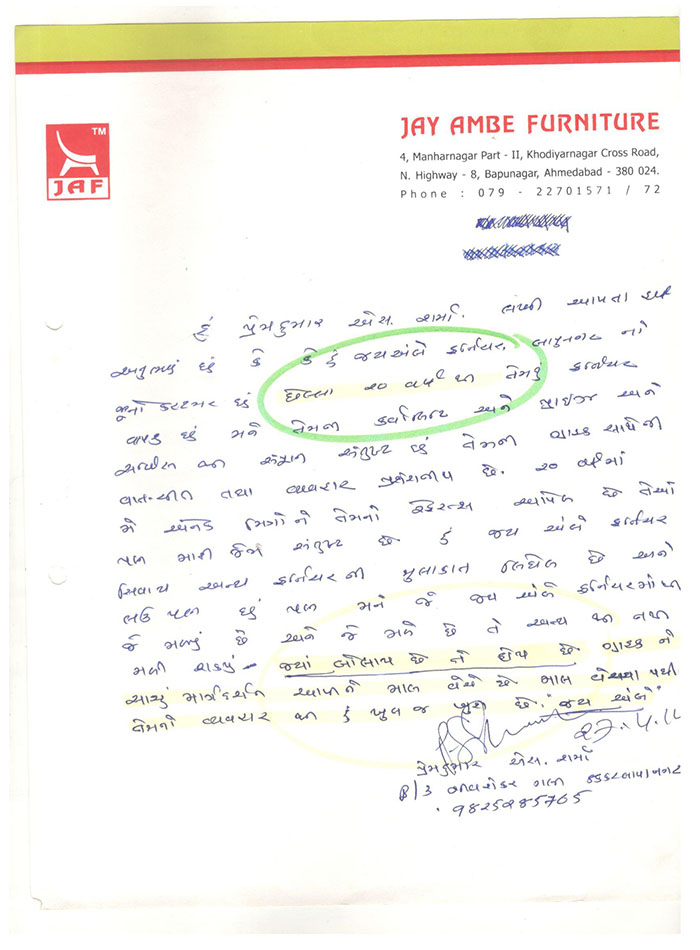 TM
JAF
JAY AMBE FURNITURE
4, Manharnagar Part - II, Khodiyarnagar Cross Road,
N. Highway - 8, Bapunagar, Ahmedabad - 380 024.
Phone : 079 - 22701571 / 72
હું પ્રેમકુમાર એસ. શર્મા. આપતા
છું કે કે હું જયઅંબે ફર્નિચર, બાપુનગર નો
જુનો કસ્ટમર છું છેલ્લા ૨૦ વર્ષ થી તેમનું ફર્નિચર
વાપરુ છું મને તેમની ક્વોલિટી અને પ્રાઇઝ અને
સંતુષ્ટ છું તેમની ગ્રાહક સાથેની
વાત-ચીત તથા વ્યવહાર પ્રશંસનીય છે. ૨૦ વર્ષમાં
મેં અનેક મિત્રોને તેમનો રેફરન્સ આપેલ છે તેઓ
પણ મારી જેમ સંતુષ્ટ છે હું જય અંબે ફર્નિચર
સિવાય અન્ય ફર્નિચર ની મુલાકાત લિધેલ છે અને
પણ છું પણ મને જે જય અંબે ફર્નિચરમાં થી
જે મળ્યું છે અને જે મળે છે તે અન્ય થી નથી
મળી શક્યું - જ્યાં બોલાય છે તે હોય છે ગ્રાહક ને
સાચું માર્ગદર્શન આપીને માલ વેચે છે માલ વેચ્યા પછી
તેમનો વ્યવહાર થી હું ખુબ જ ખુશ છું. "જય અંબે"
૨૭.4.11
પ્રેમકુમાર એસ. શર્મા
B/3
9825985765